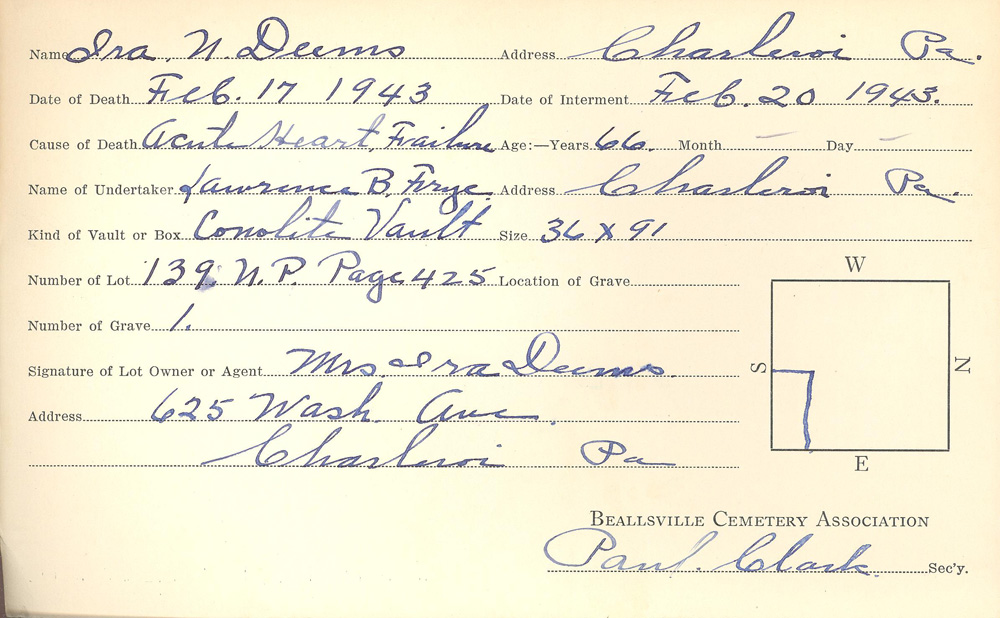 Name Ira. N. Deems Address Charleroi Pa.
Date of Death Feb. 17 1943 Date of Interment Feb. 20 1943.
Cause of Death Acute Heart, Frailure Age:—Years 66. Month — Day —
Name of Undertaker Lawrence B. Frye. Address Charleroi Pa.
Kind of Vault or Box Conolite Vault Size 36 X 91
Number of Lot 139. N.P. Page 425 Location of Grave
W
Number of Grave 1.
Signature of Lot Owner or Agent Mrs Ira Deems. S N
Address 625 Wash. Ave.
Charleroi Pa
E
BEALLSVILLE CEMETERY ASSOCIATION
Paul. Clark. Sec'y.